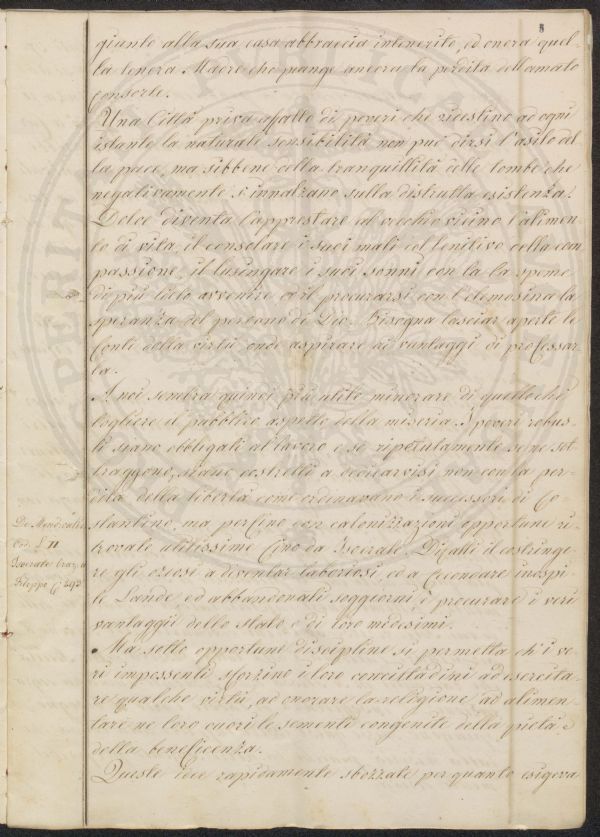 8
giunto alla sua casa abbraccia intenerito, ed onora quel-
la tenera Madre che piange ancora la perdita dell'amato
consorte.
Una Città priva affatto di poveri che ridestino ad ogni
istante la naturale sensibilità non può dirsi l'asilo del
la pace, ma sibbene della tranquillità delle tombe che
negativamente s'innalzano sulla distrutta esistenza.
Dolce diventa l'apprestare al vecchio vicino l'alimen-
to di vita, il consolare i suoi mali col lenitivo della com
passione, il lusingare i suoi sonni con la la speme
di più lieto avvenire ed il procurarsi con l'elemosina la
speranza del perdono di Dio. Bisogna lasciar aperte le
fonti della virtù onde aspirare ai vantaggi di professar-
la.
A noi sembra quindi più utile minorare di quello che
togliere il pubblico aspetto della miseria. I poveri robus-
ti siano obbligati al lavoro e se ripetutamente se ne sot-
traggono, siano costretti a dedicarvisi non con la per-
dita della libertà come ordinavano i successori di Co-
stantino, ma perfino con colonizzazioni opportune ri-
trovate utilissime fino da Isocrate. Difatti il costringe-
re gli oziosi a diventar laboriosi, ed a fecondare inospi-
te Lande ed abbandonati soggiorni, è procurare i veri
vantaggi dello stato e di loro medesimi.
Ma sotto opportune discipline si permetta ch'i ve-
ri impossenti sforzino i loro concittadini ad esercita-
re qualche virtù, ad onorare la religione ad alimen-
tare ne loro cuori le sementi congenite della pietà e
della beneficenza.
Queste idee rapidamente sbozzate per quanto esigeva
De Mendicatis
Cod. L II
Isocrate oraz. a
Filippo